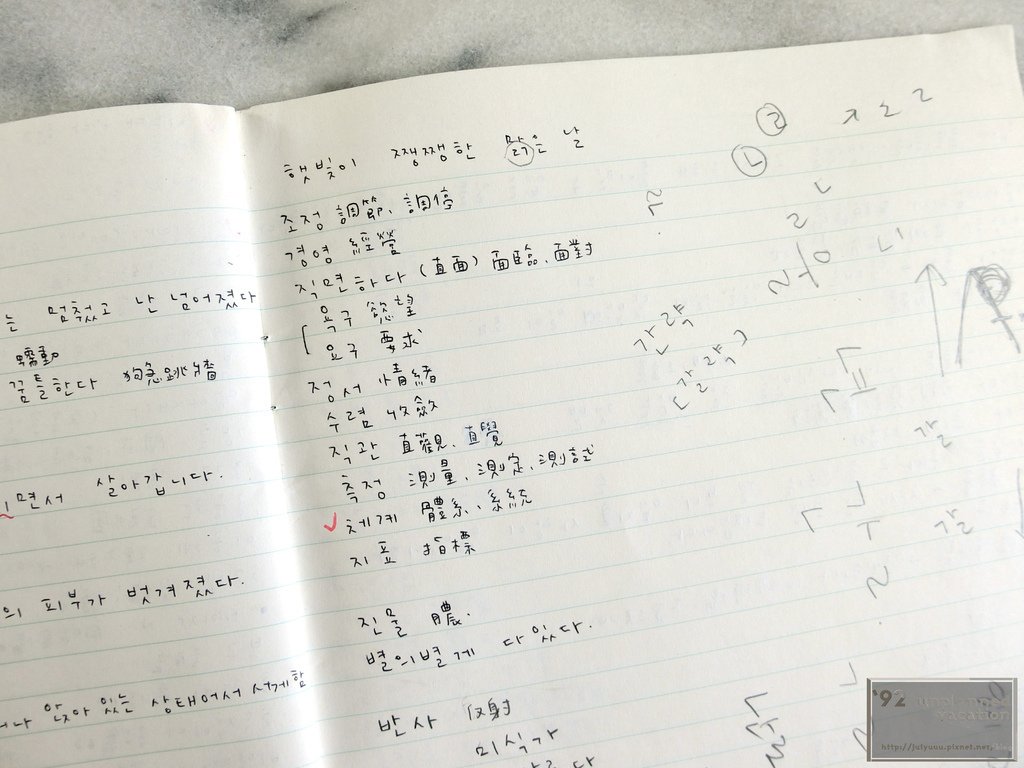 는 멈췄고 난 넘어졌다
꿈틀한다 狗急跳牆
면서 살아갑니다.
의 피부가 벗겨졌다.
앉아 있는 상태에서 서게함
햇빛이 쨍쨍한 맑은 날
조정 調節、調停
경영 經營
직면하다 (直面) 面臨、面對
욕구 慾望
요구 要求
정서 情緒
수렴 收斂
직관 直觀、直覺
측정 測量、測定、測試
체계 體系、系統
지표 指標
진물 膿.
별의별게 다 있다.
반사 反射
미식가
간략
[갈략]
'92 unplanned vacation
http://julyuuu.pixnet.net/blog